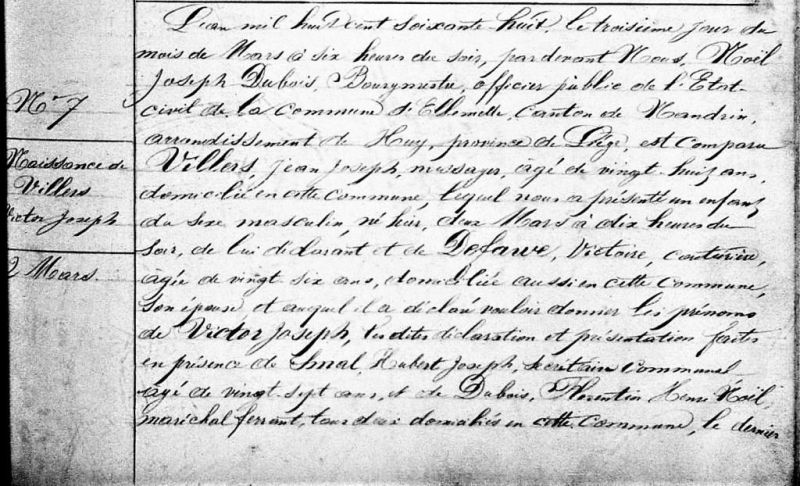 L'an mil huit cent soixante huit, le troisième jour du
mois de Mars à six heures du soir, pardevant Nous, Noël
Joseph Dubois, Bourgmestre, officier public de l'Etat-
civil de la commune d'Ellemelle, canton de Nandrin,
arrondissement de Huy, province de Liège, est comparu
Villers, Jean Joseph, messager, agé de vingt-huit ans,
domicilié en cette commune, lequel nous a présenté un enfant
du sexe masculin, né hier, deux Mars à dix heures du
soir, de lui déclarant et de Defawe, Victoire, couturière,
agée de vingt six ans, domiciliée aussi en cette commune,
son épouse, et auquel il a déclaré vouloir donner les prénoms
de Victor Joseph, les dites déclaration et présentation faites
en présence de Smal, Hubert Joseph, secrétaire communal
agé de vingt-sept ans, et de Dubois, Florentin Henri Noël,
maréchal ferrant, tous deux domiciliés en cette commune, le dernier
N° 7
Naissance de
Villers
Victor Joseph
2 Mars.